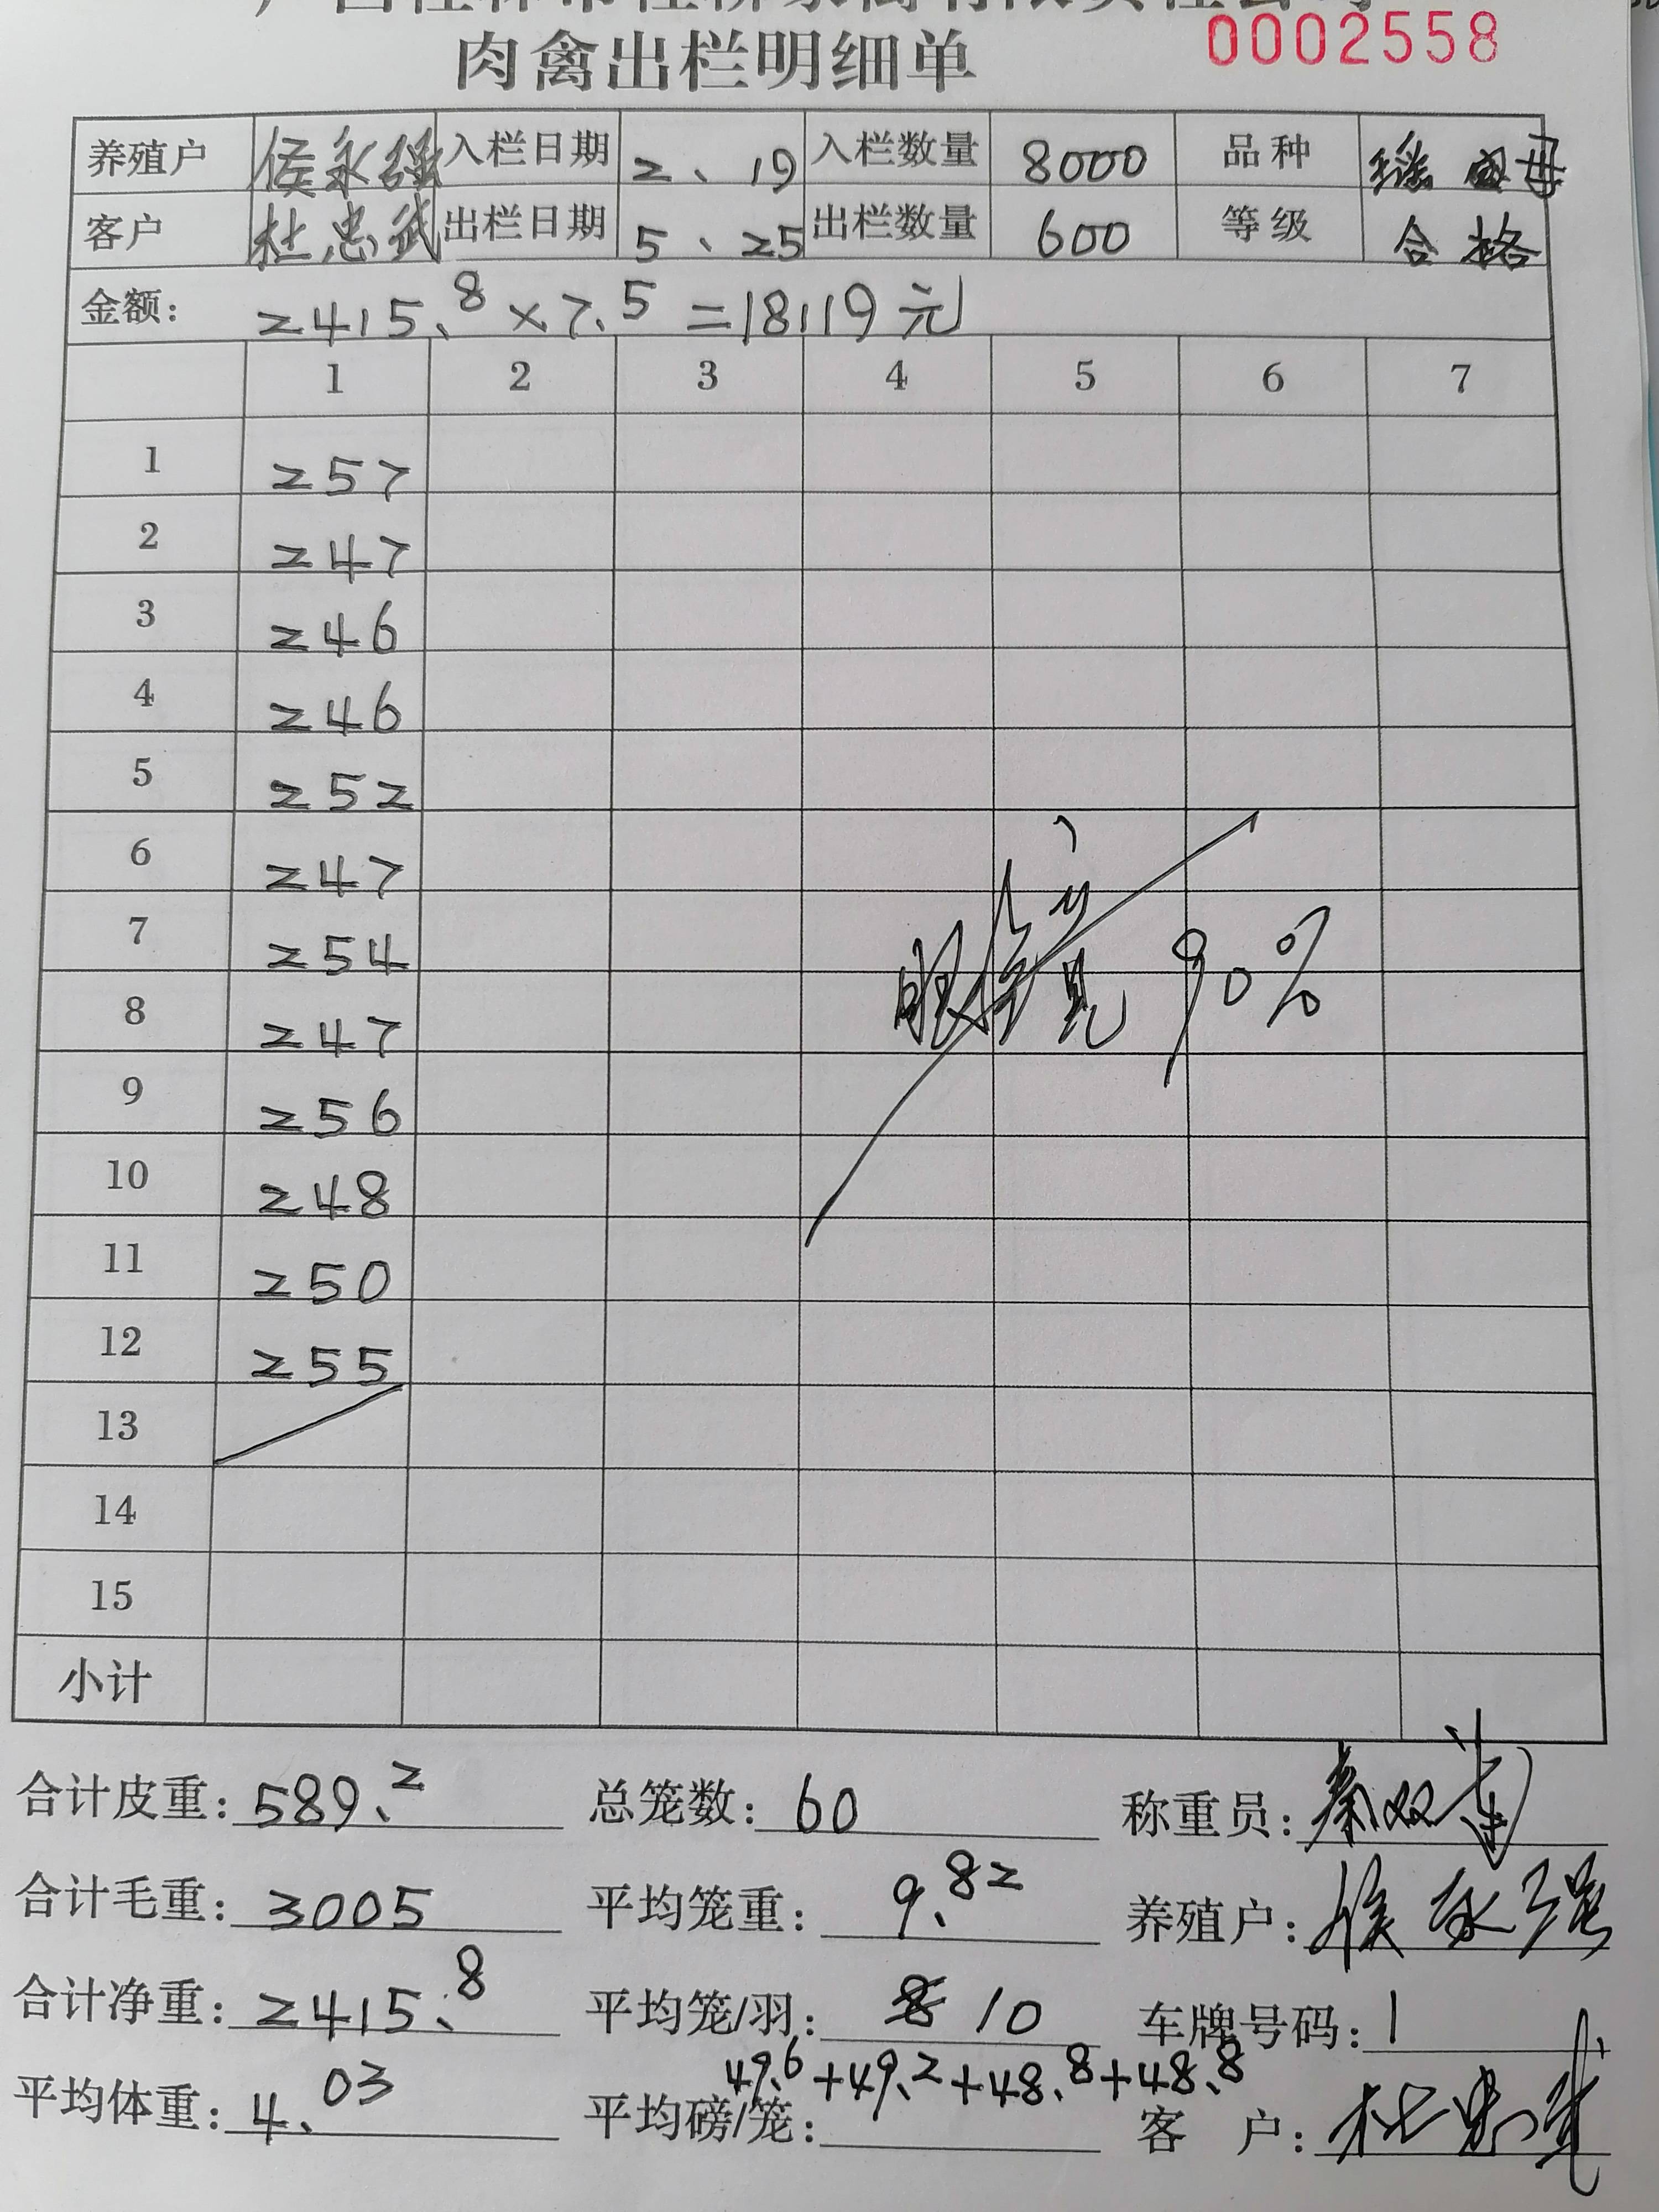 肉禽出栏明细单 0002558
养殖户 侯永强 入栏日期 2、19 入栏数量 8000 品种 瑶
客户 杜忠武 出栏日期 5、25 出栏数量 600 等级 合格
金额: 2415.8×7.5=18119元
1 2 3 4 5 6 7
1 257
2 247
3 246
4 246
5 252
6 247
7 254
8 247
9 256
10 248
11 250
12 255
13
14
15
小计
90%
合计皮重: 589.2 总笼数: 60 称重员: 秦双
合计毛重: 3005 平均笼重: 9.82 养殖户: 侯永强
合计净重: 2415.8 平均笼/羽: 10 车牌号码: 1
49.6+49.2+48.8+48.8
平均体重: 4.03 平均磅/笼: 客 户: 杜忠武